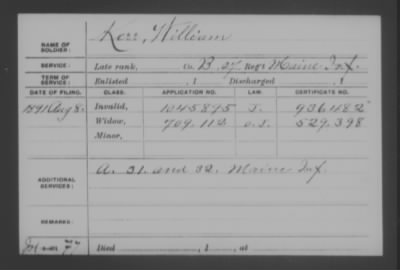 NAME OF SOLDIER: Kerr, William
SERVICE: Late rank, Co. B. 27 Reg't Maine Inf.
TERM OF SERVICE: Enlisted , 1 Discharged , 1
DATE OF FILING. CLASS. APPLICATION NO. LAW. CERTIFICATE NO.
1891 Aug 8. Invalid, 1045875 J. 936482
Widow, 709.112 O.S. 529.398
Minor,
ADDITIONAL SERVICES: A. 31. and 32. Maine Inf.
REMARKS:
Died , 1 , at